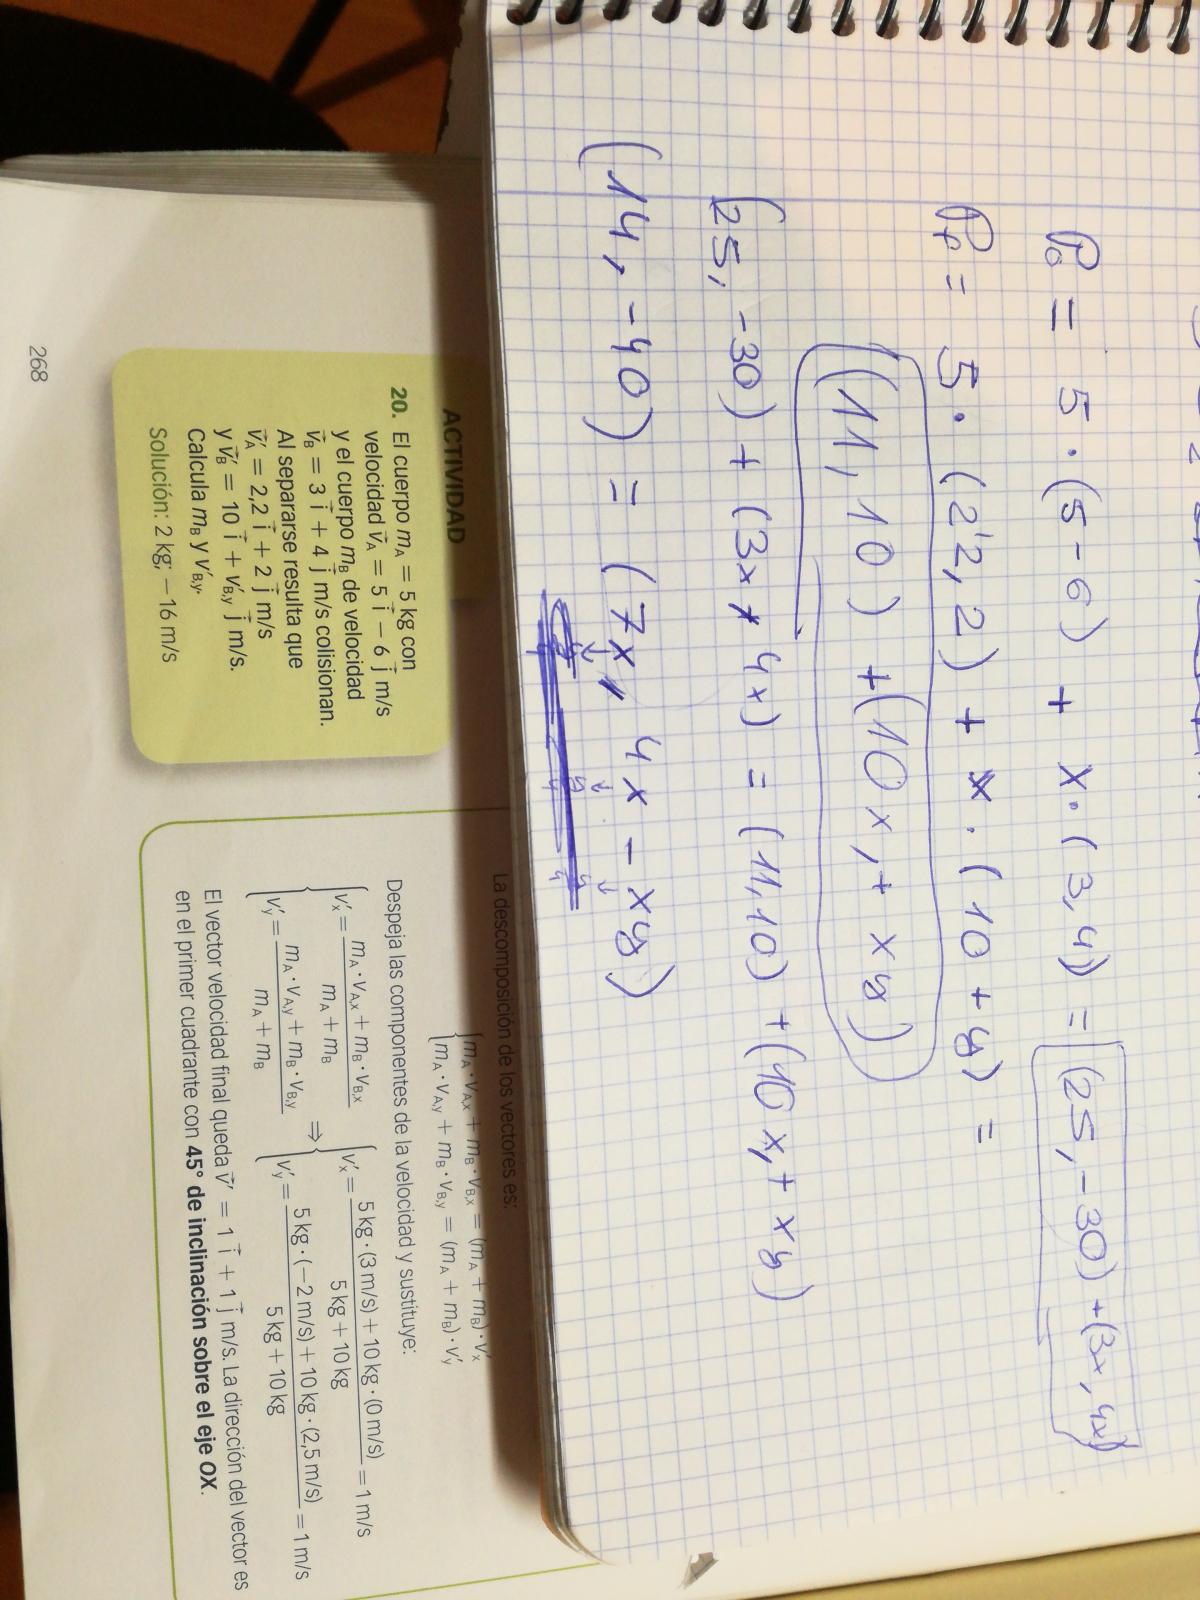 P₀ = 5·(5-6) + x·(3,4) = (25,-30)+(3x,4x)
P_f = 5·(2'2,2) + x·(10+y) =
(11,10) +(10x,+xy)
(25,-30) + (3x, 4x) = (11,10) +(10x,+xy)
(14,-40) = (7x, 4x - xy)
ACTIVIDAD
20. El cuerpo m_A = 5 kg con
velocidad v⃗_A = 5 i⃗ − 6 j⃗ m/s
y el cuerpo m_B de velocidad
v⃗_B = 3 i⃗ + 4 j⃗ m/s colisionan.
Al separarse resulta que
v⃗′_A = 2,2 i⃗ + 2 j⃗ m/s
y v⃗′_B = 10 i⃗ + v′_B,y j⃗ m/s.
Calcula m_B y v′_B,y.
Solución: 2 kg; −16 m/s
268
La descomposición de los vectores es:
m_A · v_A,x + m_B · v_B,x = (m_A + m_B) · v′_x
m_A · v_A,y + m_B · v_B,y = (m_A + m_B) · v′_y
Despeja las componentes de la velocidad y sustituye:
v′_x = (m_A · v_A,x + m_B · v_B,x) / (m_A + m_B) ⇒ v′_x = (5 kg · (3 m/s) + 10 kg · (0 m/s)) / (5 kg + 10 kg) = 1 m/s
v′_y = (m_A · v_A,y + m_B · v_B,y) / (m_A + m_B) ⇒ v′_y = (5 kg · (−2 m/s) + 10 kg · (2,5 m/s)) / (5 kg + 10 kg) = 1 m/s
El vector velocidad final queda v⃗′ = 1 i⃗ + 1 j⃗ m/s. La dirección del vector es
en el primer cuadrante con 45° de inclinación sobre el eje OX.